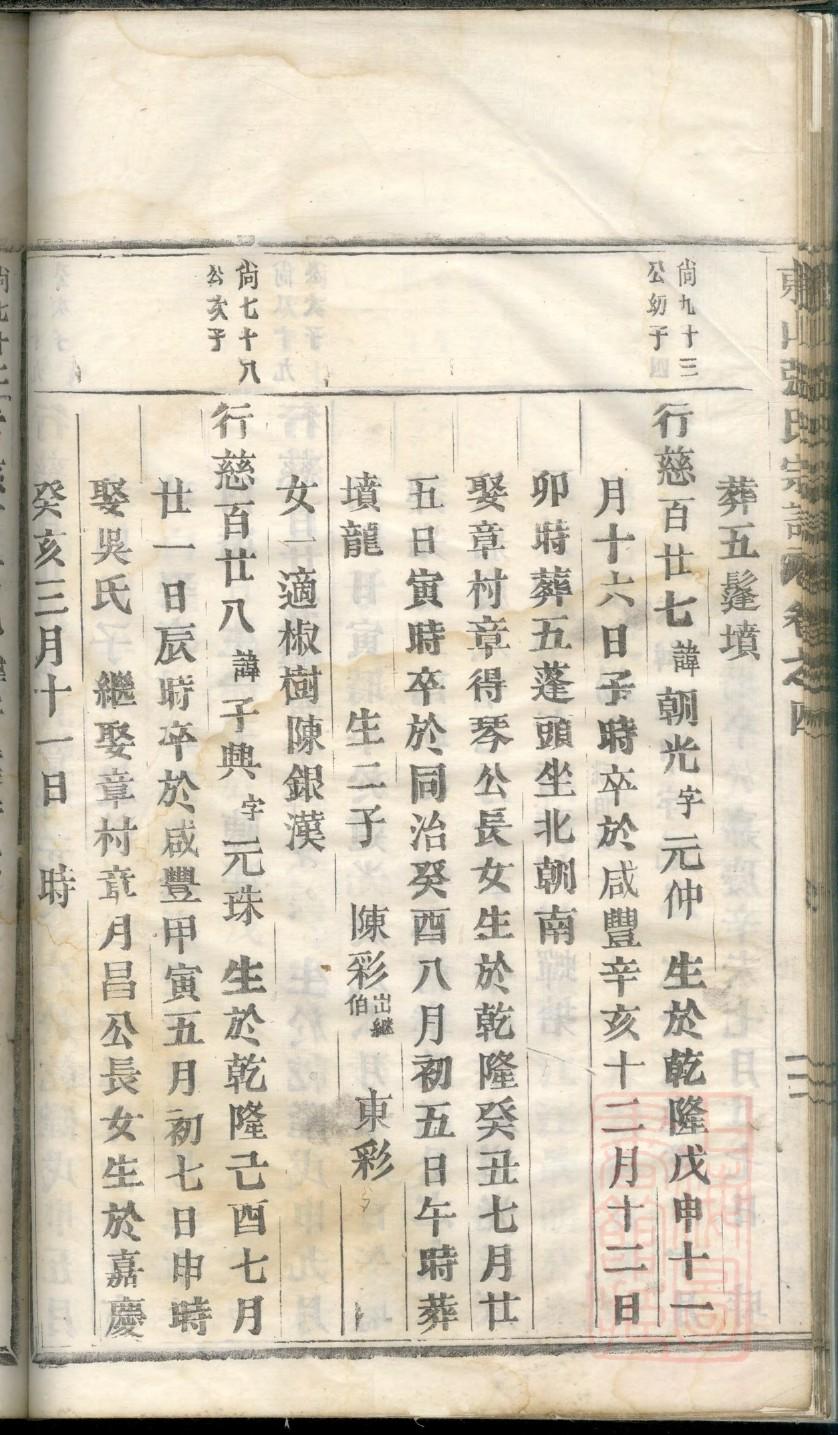 張氏宗譜 卷之四
葬五鬔墳
尙九十三
公幼子
行慈百廿七諱朝光字元仲 生於乾隆戊申十一
月十六日子時卒於咸豐辛亥十二月十二日
卯時葬五蓬頭坐北朝南
娶章村章得琴公長女生於乾隆癸丑七月廿
五日寅時卒於同治癸酉八月初五日午時葬
墳龍 生二子 陳彩出繼伯 東彩
女一適椒樹陳銀漢
尙七十八
公亥子
行慈百廿八諱子興字元珠 生於乾隆己酉七月
廿一日辰時卒於咸豐甲寅五月初七日申時
娶吳氏 繼娶章村章月昌公長女生於嘉慶
癸亥三月十一日 時